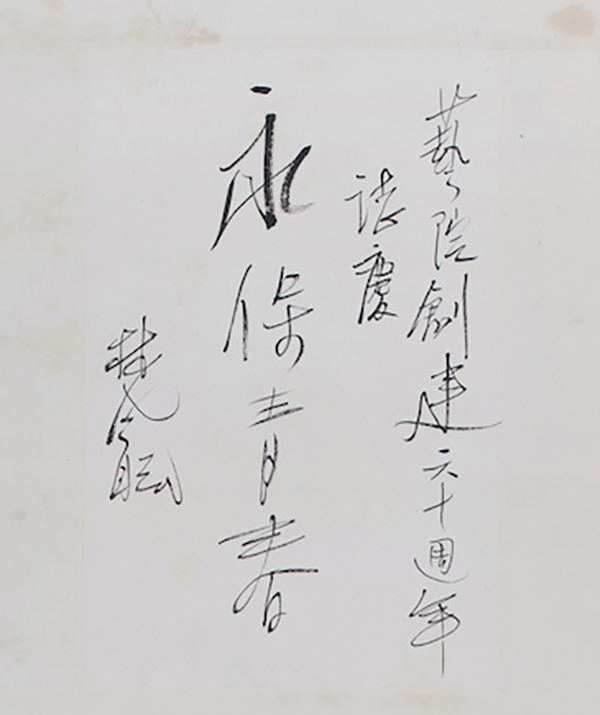 藝院創建六十週年
誌慶
永保青春